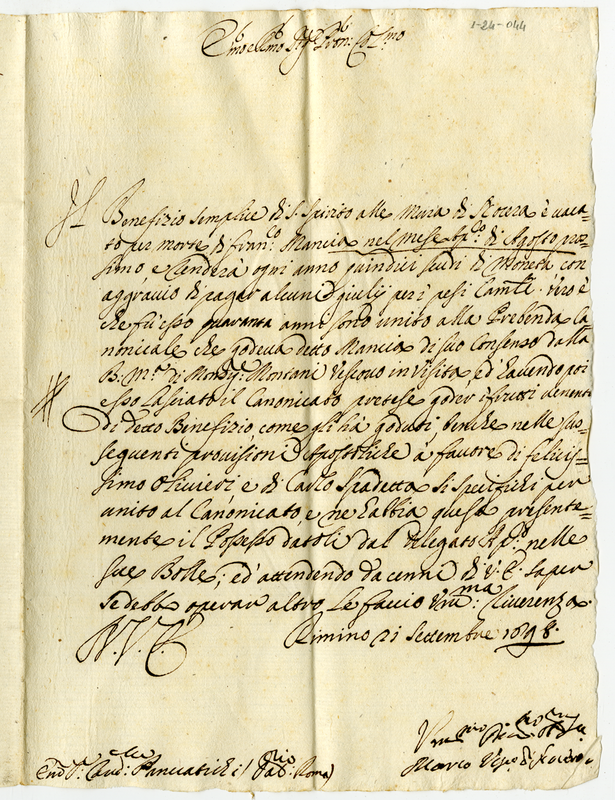 1-24-044
Emo e Rmo Sig.r Pron: Col.mo
Il Benefizio semplice di S. Spirito alle Mura di Nocera è vaca=
to per morte di Fran.co Mancia nel mese sp.o di Agosto pros
simo e renderà ogni anno quindici scudi di Moneta con
aggravio di pagar alcuni giulij per i pesi Cam.li. Vero è
che fù esso quaranta anni sono unito alla Prebenda Ca
nonicale che godeva detto Mancia di suo Consenso dalla
B: M.a di Mons.r Montani Vescovo in Visita, ed havendo poi
esso lasciato il Canonicato pretese goder i frutti
di detto Benefizio come gli hà goduti benche nelle sus=
seguenti provisioni Apostoliche à favore di Felicis=
simo Olivieri e di Carlo Spadetta si specifichi per
unito al Canonicato, e ne habbia questo presente=
mente il Possesso datoli dal Delegato Ap.co nelle
sue Bolle; ed attendendo da cenni di V. E. saper
se debba operar altro le faccio Um.ma Riverenza.
Di V. E. Rimino 21 Settembre 1698.
Marco Vesc.o di Nocera
Em.o S.r Card: Panciatichi (Dat.rio Roma)